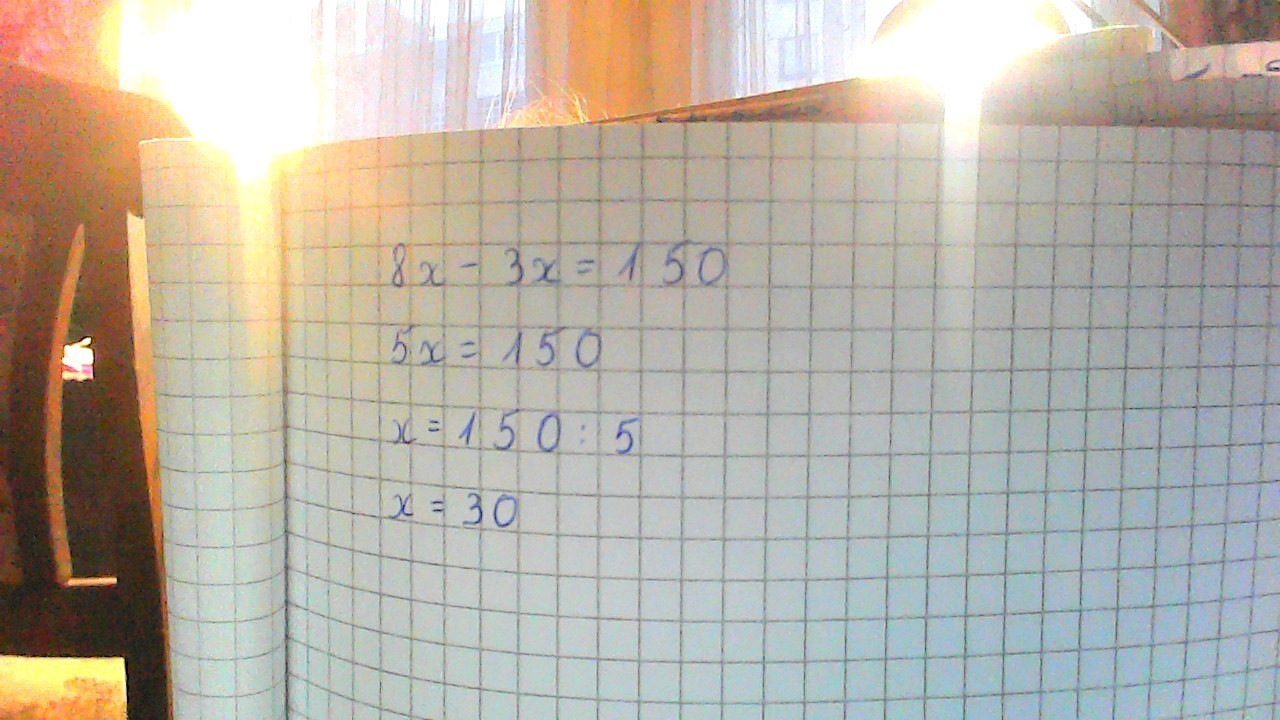 8x - 3x = 150
5x = 150
x = 150 : 5
x = 30